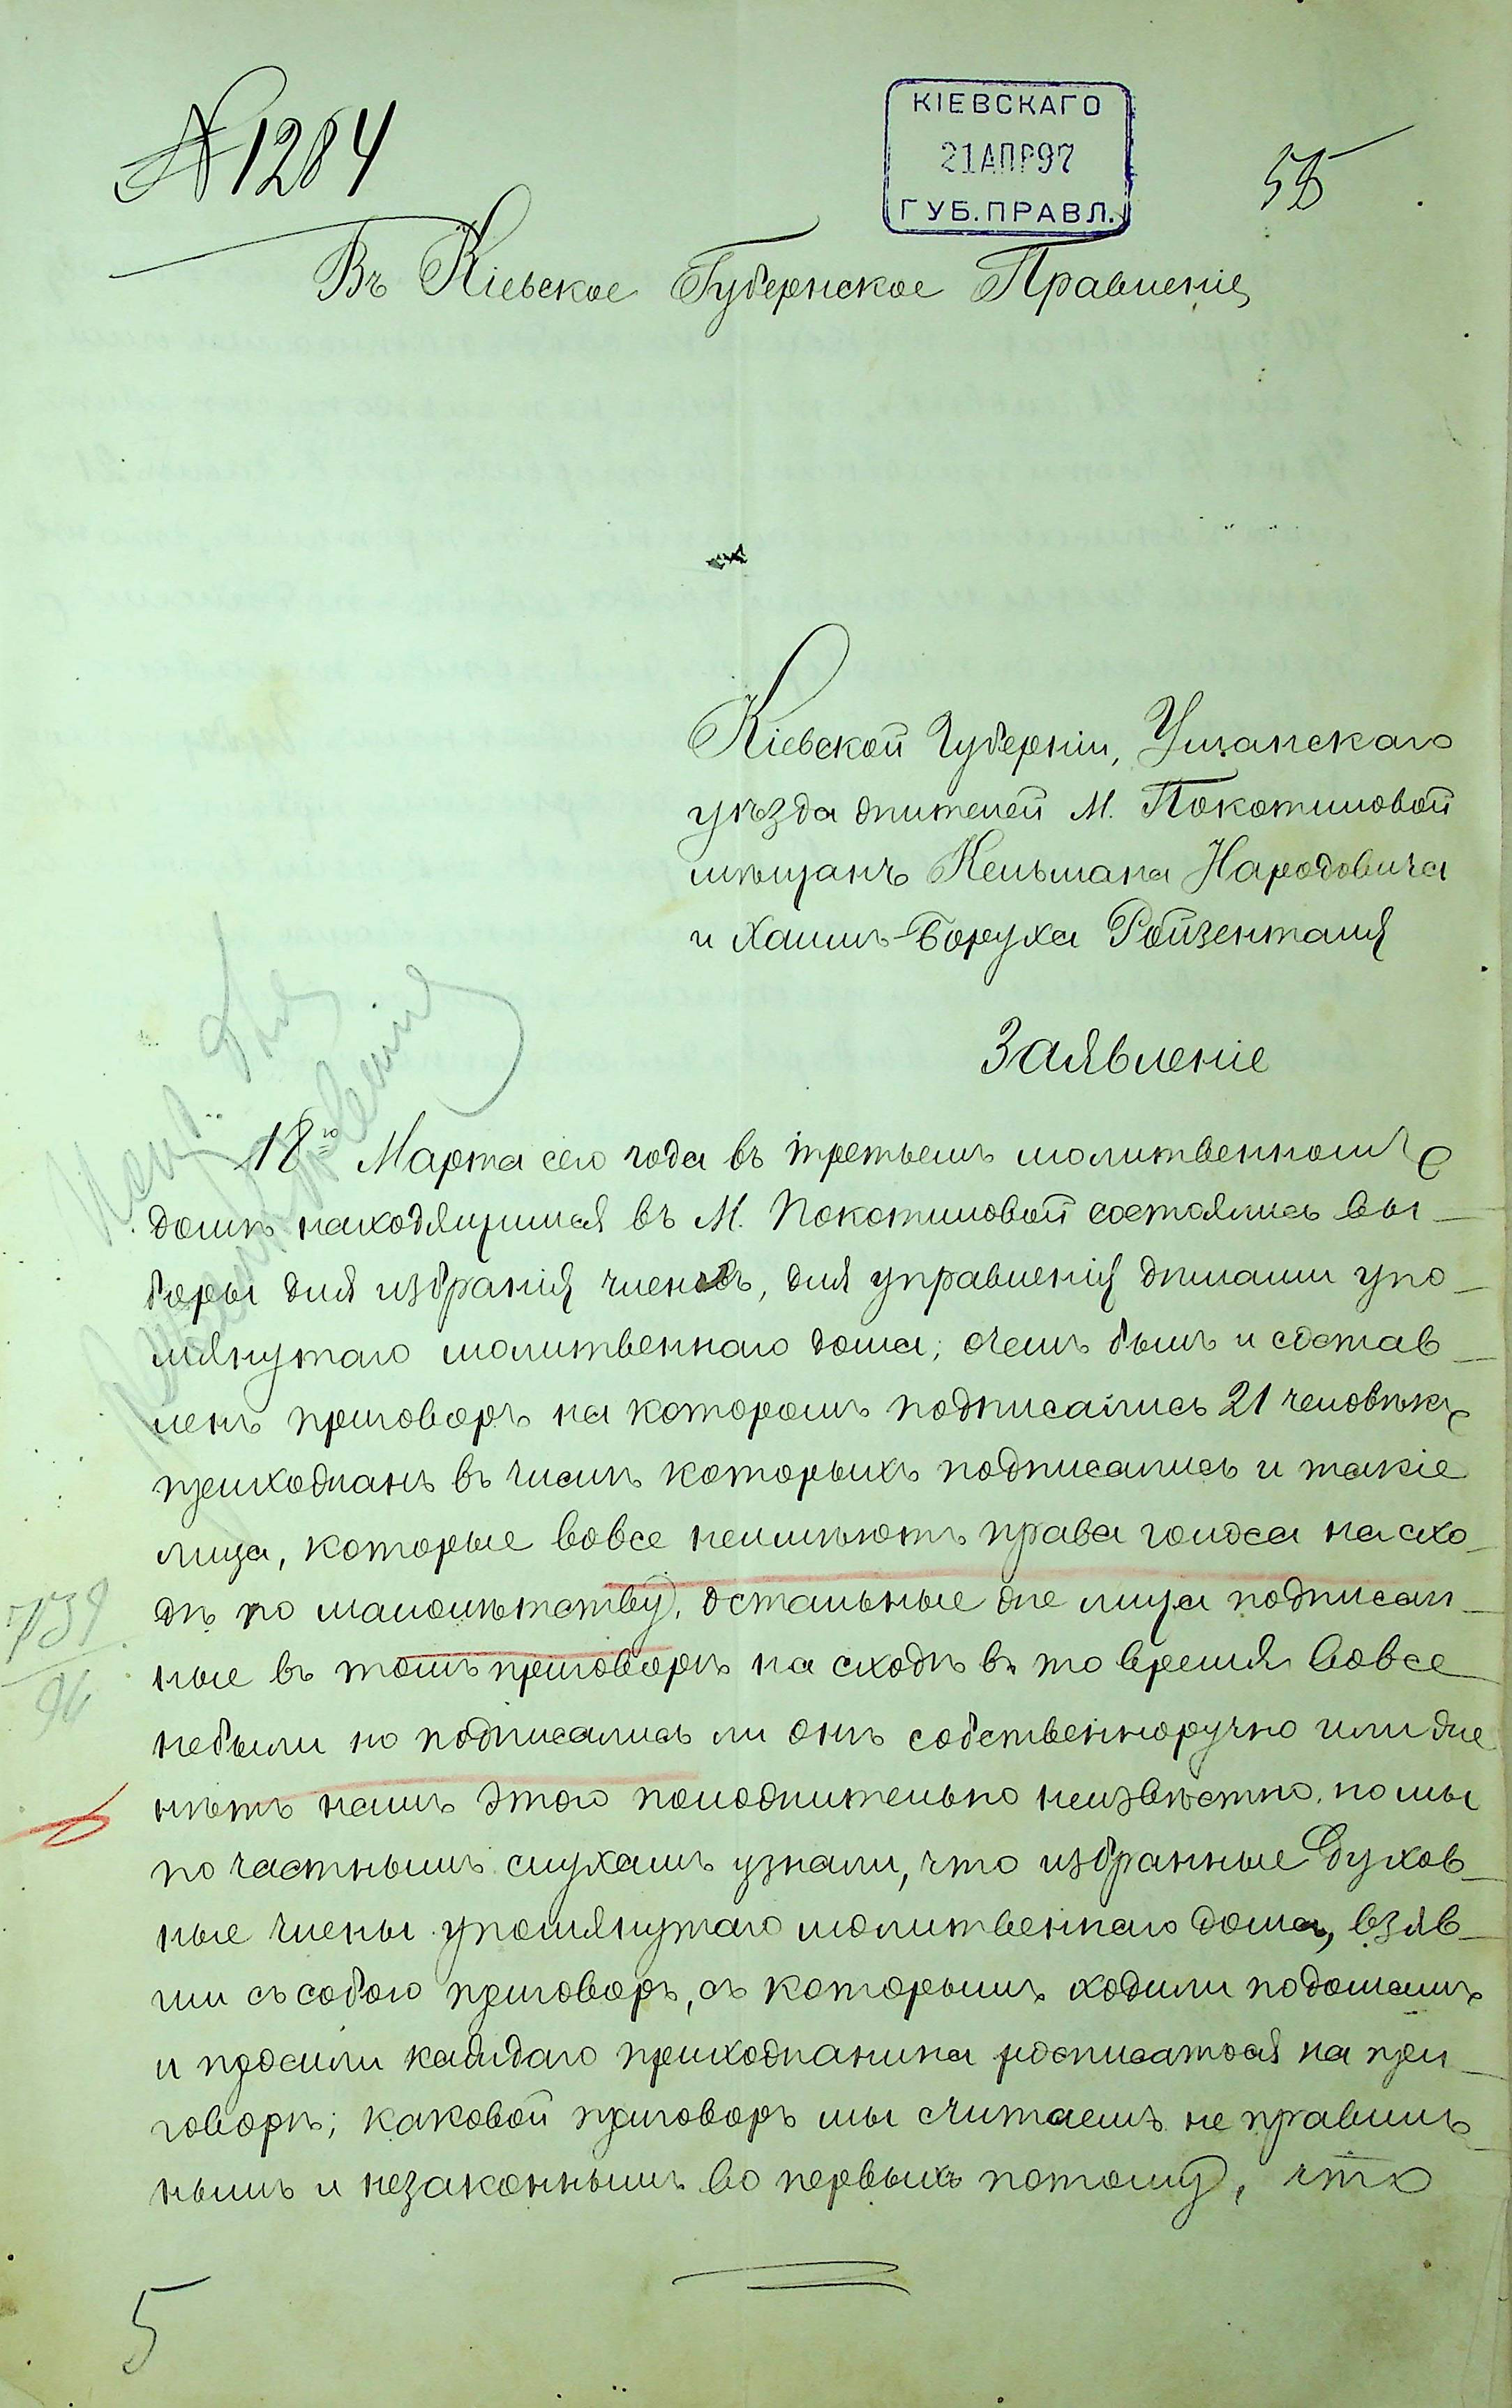 № 1284
КІЕВСКАГО
21 АПР 97
ГУБ. ПРАВЛ.
55
Въ Кіевское Губернское Правленіе
Кіевской Губерніи, Уманскаго
уѣзда жителей М. Покотиловой
мѣщанъ Кельмана Народовича
и Хаимъ-Боруха Ройзенталя
Заявленіе
18го Марта сего года въ третьемъ молитвенномъ
домѣ находящимся въ М. Покотиловой состоялись вы-
боры для избранія членовъ, для управленія дѣлами упо-
мянутаго молитвеннаго дома; очемъ былъ и состав-
ленъ приговоръ на которомъ подписались 21 человѣкъ
прихожанъ въ числѣ которыхъ подписались и такіе
лица, которые вовсе неимѣютъ права голоса на схо-
дѣ по малолѣтству, остальные же лица подписан-
ные въ томъ приговорѣ на сходѣ въ то время вовсе
небыли но подписались ли онѣ собственноручно или же
нѣтъ намъ этого положительно неизвѣстно, но мы
по частнымъ слухамъ узнали, что избранные Духов-
ные члены упомянутаго молитвеннаго дома, взяв-
ши съ собою приговоръ, съ которымъ ходили по домамъ
и просили каждаго прихожанина росписаться на при-
говорѣ; каковой приговоръ мы считаемъ не правиль-
нымъ и незаконнымъ во первыхъ потому, что
739
94
5